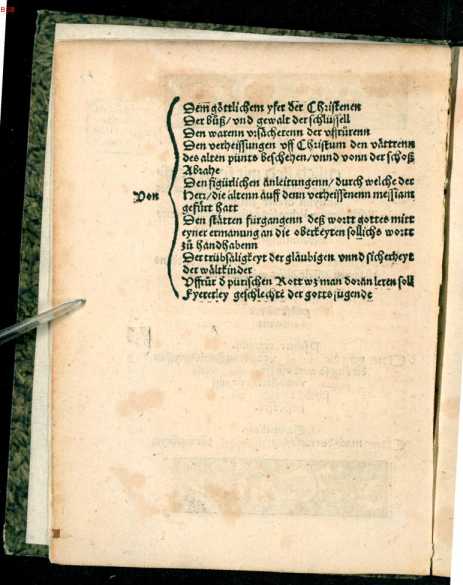 Dem göttlichem yfer der Christenen
Der büß/ vnd gewalt der schlüssell
Den warenn vrsächerenn der vffrürenn
Den verheissungen vff Christum den vättrenn
des alten punts beschehen/ vnnd vonn der schoß
Abrahe
Den figürlichen anleitungenn/ durch welche der
Von
Herr/ die altenn auff denn verheissenenn messiam
gefürt hatt
Den stätten fürgangenn deß wortt gottes mitt
eyner ermanung an die oberkeyten sollichs wortt
zü handhabenn
Der trübsäligkeyt der gläubigen vnnd sicherheyt
der wältkinder
Vffrür d pürischen Rott wz man doran leren soll
Fyererley geschlecht der gotts jugende